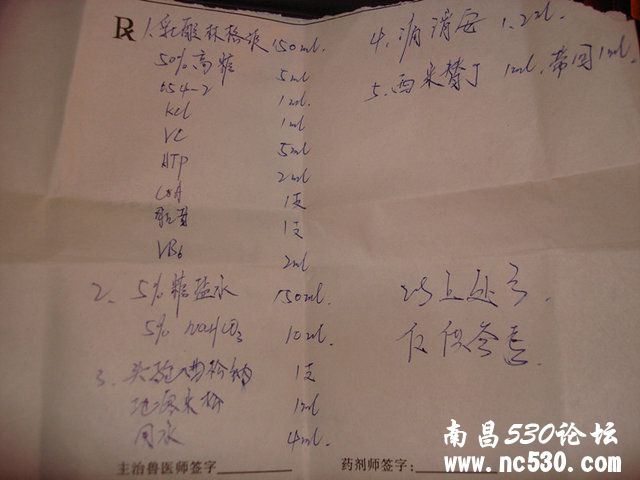 R 1. 乳酸林格液 150ml
50%高糖 5ml
654-2 1ml
kcl 1ml
VC 5ml
ATP 2ml
CoA 1支
1支
VB6 2ml
2. 5%糖盐水 150ml
5% NaHCO3 10ml
3. 头孢曲松钠 1支
地塞米松 1ml
用水 4ml
4. 病消安 1.2ml
5. 西米替丁 1ml. 1ml
以上处方
仅供参考
主治兽医师签字
药剂师签字:
南昌530论坛
www.nc530.com